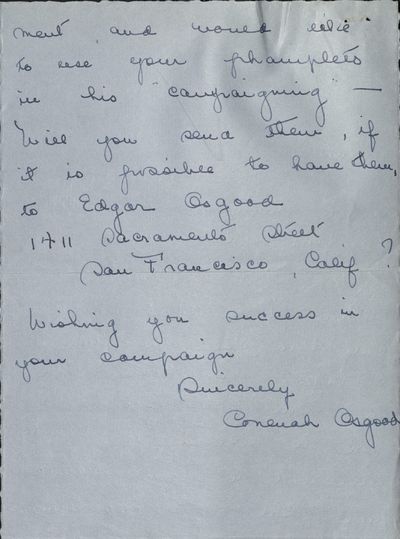 ment and would like
to use your phamplets
in his "campaigning" —
Will you send them, if
it is possible to have them,
to Edgar Osgood
1411 Sacramento street
San Francisco, Calif ?
Wishing you success in
your campaign
Sincerely
Osgood